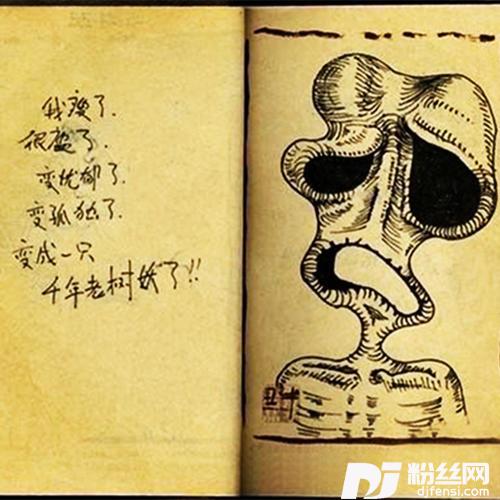 我瘦了.
很 了.
变忧郁了.
变孤独了.
变成一只
千年老树妖了!!
DJ 粉丝网
djfensi.com